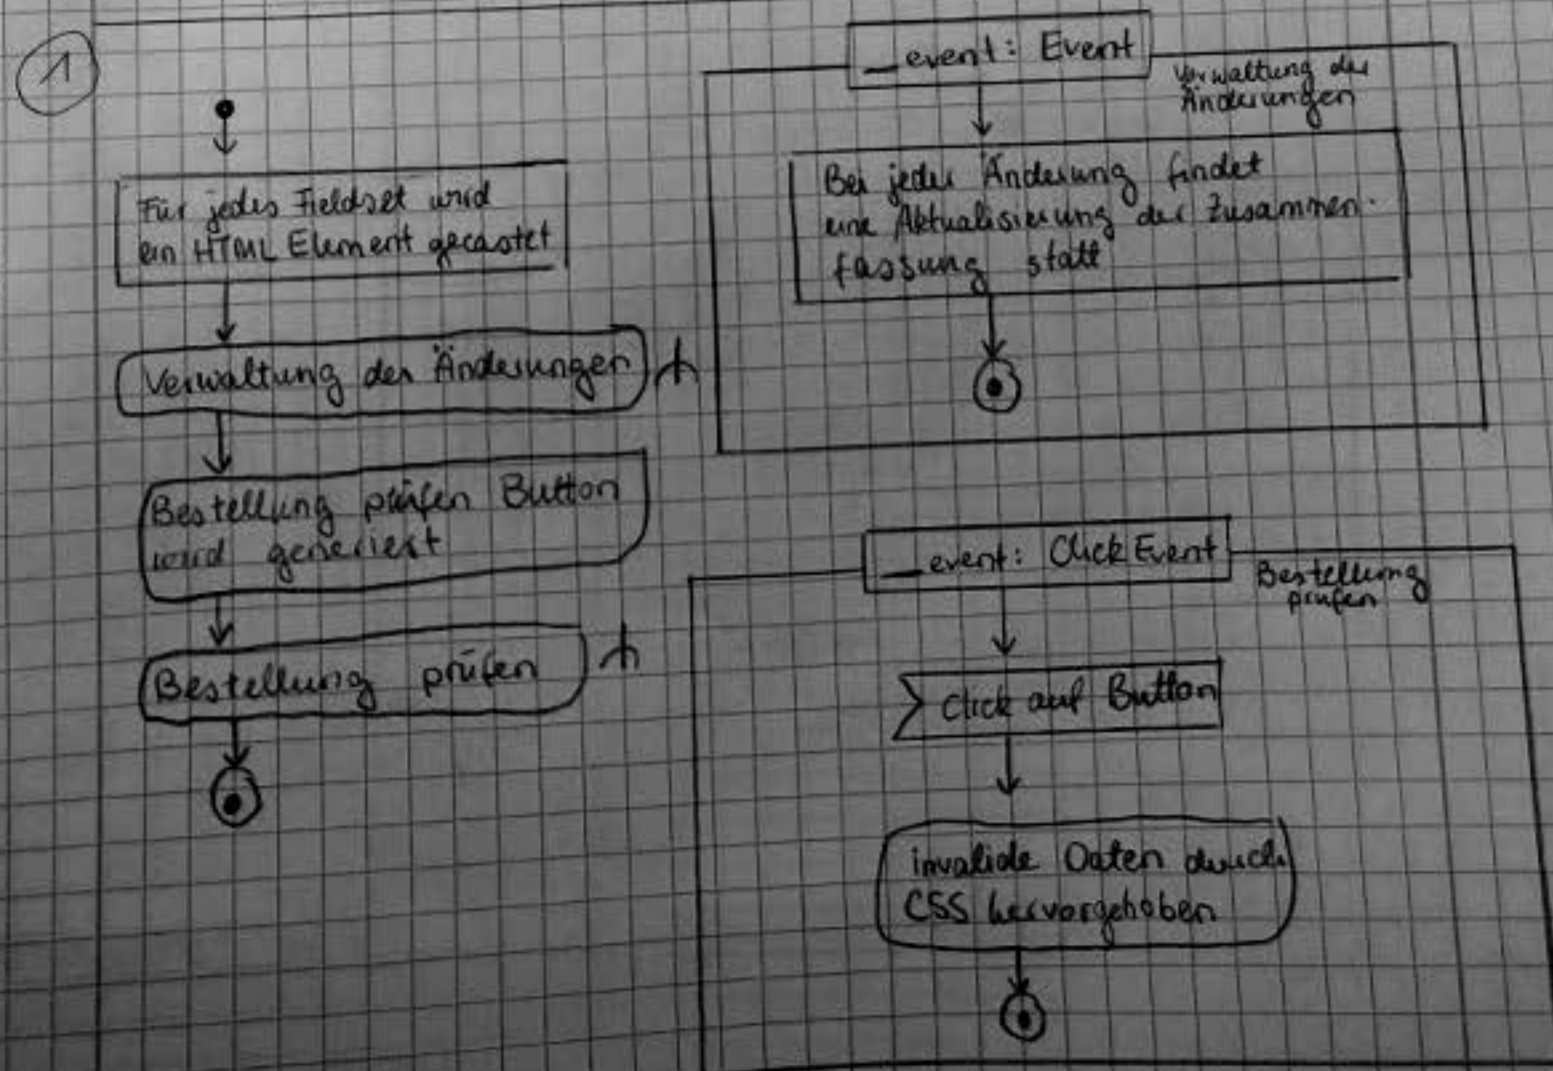 1
Für jedes Fieldset wird
ein HTML Element gecastet
Verwaltung der Änderungen
Bestellung prüfen Button
wird generiert
Bestellung prüfen
__event: Event
Verwaltung der
Änderungen
Bei jeder Änderung findet
eine Aktualisierung der Zusammen-
fassung statt
__event: ClickEvent
Bestellung
prüfen
Click auf Button
invalide Daten durch
CSS hervorgehoben